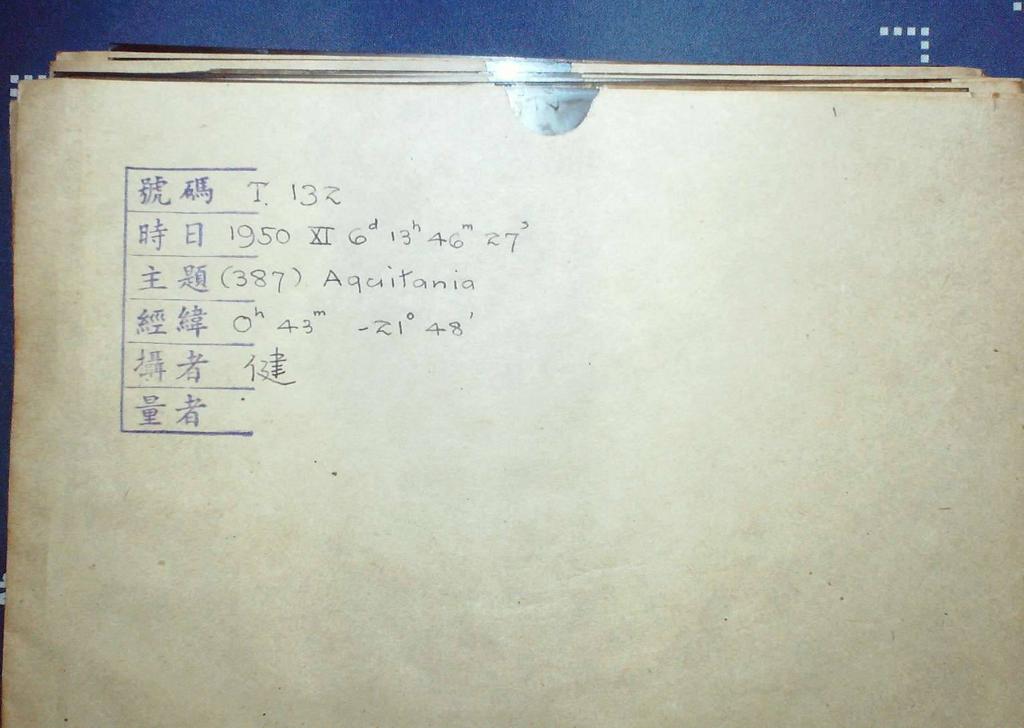 號碼 T. 132
時日 1950 XI 6ᵈ 13ʰ 46ᵐ 27ˢ
主題 (387) Aquitania
經緯 0ʰ 43ᵐ -21° 48'
攝者 健
量者